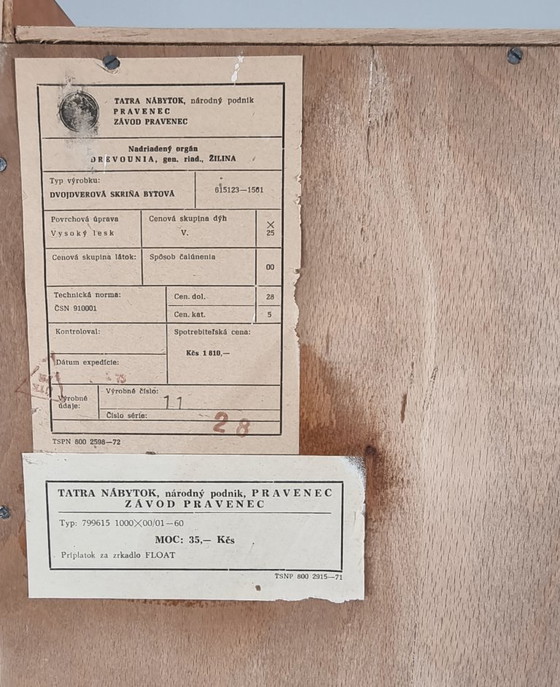 TATRA NÁBYTOK, národný podnik
PRAVENEC
ZÁVOD PRAVENEC
Nadriadený orgán
DREVOUNIA, gen. riad., ŽILINA
Typ výrobku:
DVOJDVEROVÁ SKRIŇA BYTOVÁ
615123—1561
Povrchová úprava
Vysoký lesk
Cenová skupina dýh
V.
X
25
Cenová skupina látok:
Spôsob čalúnenia
00
Technická norma:
ČSN 910001
Cen. dol.
28
Cen. kat.
5
Kontroloval:
Spotrebiteľská cena:
Kčs 1 810,—
Dátum expedície:
75
Výrobné
údaje:
Výrobné číslo:
11
Číslo série:
28
TSPN 800 2598—72
TATRA NÁBYTOK, národný podnik, PRAVENEC
ZÁVOD PRAVENEC
Typ: 799615 1000X00/01—60
MOC: 35,— Kčs
Príplatok za zrkadlo FLOAT
TSNP 800 2915—71